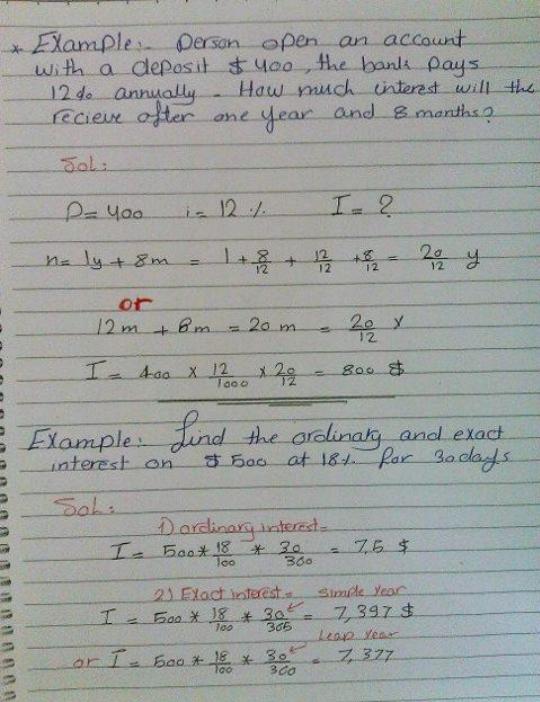 * Example:- Person open an account
with a deposit $ 400, the bank pays
12% annually. How much interest will the
recieve after one year and 8 months?
Sol:
P= 400 i= 12 % I= ?
n= 1y + 8m = 1 + 8/12 + 12/12 + 8/12 = 20/12 y
or
12m + 8m = 20m = 20/12 y
I = 400 x 12/1000 x 20/12 = 800 $
Example: find the ordinary and exact
interest on $ 500 at 18% for 30 days
Sol:
1) ordinary interest=
I = 500 * 18/100 * 30/360 = 7,5 $
2) Exact interest= simple year
I = 500 * 18/100 * 30/365 = 7,397 $
leap year
or I = 500 * 18/100 * 30/360 = 7,377